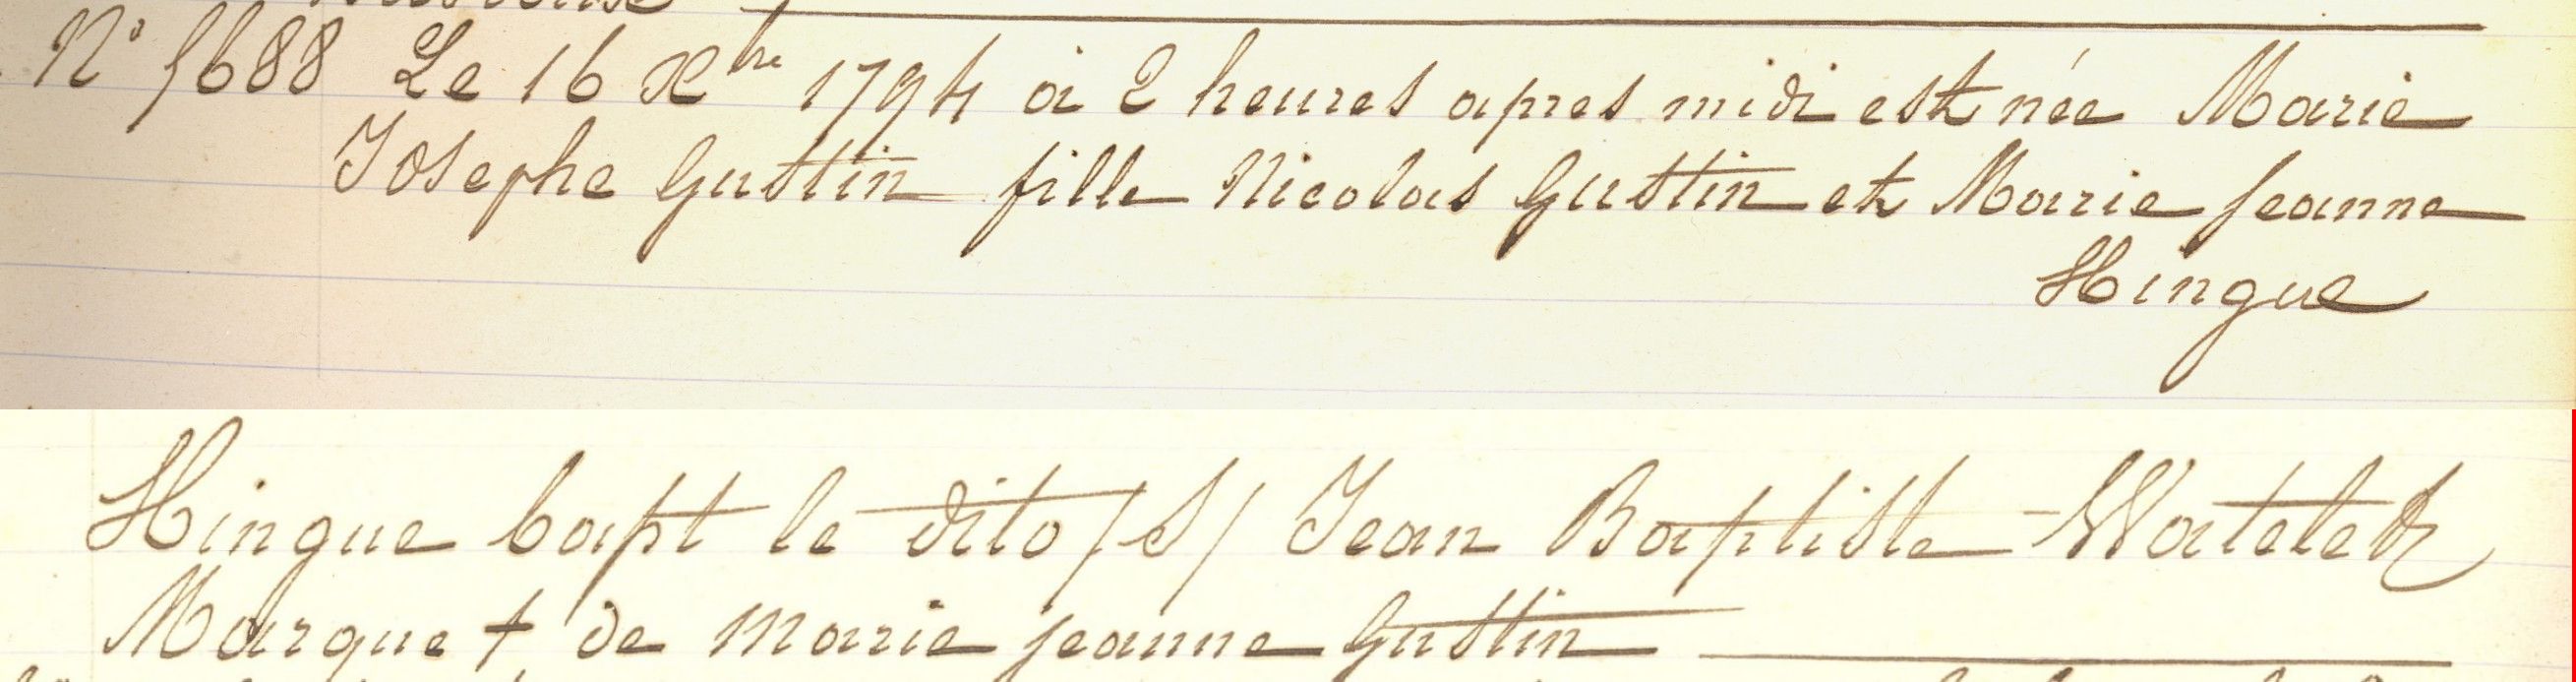 N° 5688 Le 16 Xbre 1794 à 2 heures apres midi est née Marie
Josephe Gustin fille Nicolas Gustin et Marie Jeanne
Hingue
Hingue bapt le dito /S/ Jean Baptiste Watelet
Marque + de marie jeanne Gustin